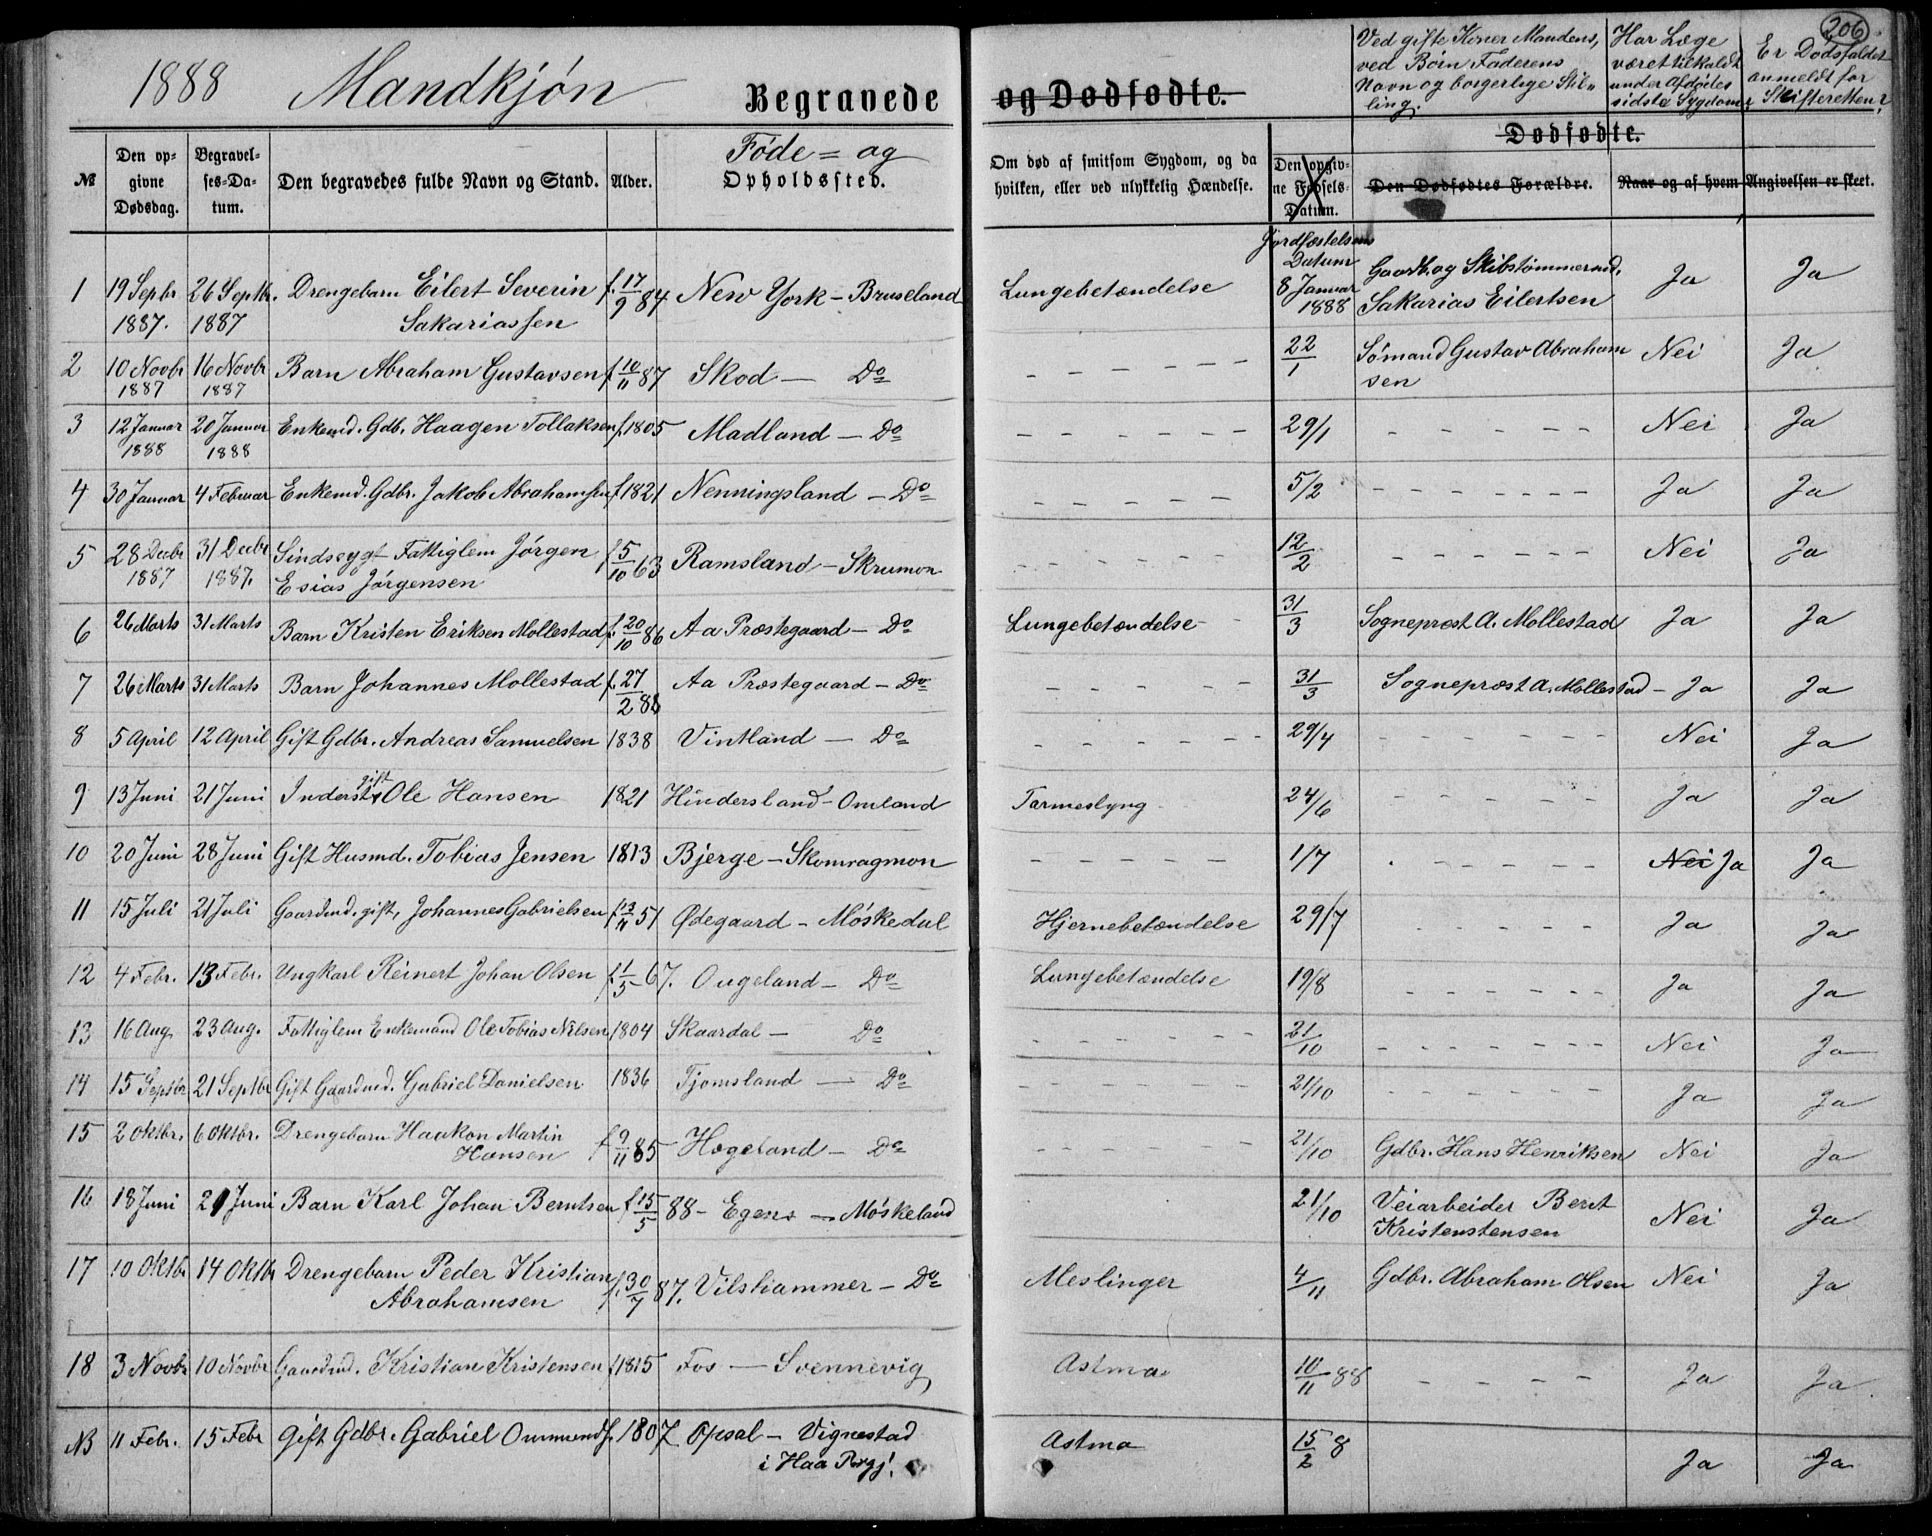 206
1888 Mandkjøn Begravede og Dødfødte.
Ved gifte Koner Mandens, ved Børn Faderens Navn og borgerlige Stilling.
Har Læge været tilkaldt under Afdødes sidste Sygdom?
Er Dødsfaldet anmeldt for Skifteretten?
Dødfødte.
№ Den opgivne Dødsdag. Begravelses-Datum. Den begravedes fulde Navn og Stand. Alder. Føde- og Opholdssted. Om død af smitsom Sygdom, og da hvilken, eller ved ulykkelig Hændelse. Den opgivne Fødsels-Datum. Den Dødfødtes Forældre. Naar og af hvem Angivelsen er skeet.
Jordfæstelsens Datum
1 19 Sepbr 1887. 26 Septbr. 1887 Drengebarn Eilert Severin Sakariassen f. 17/9 84 New York - Bruseland Lungebetændelse 8 Januar 1888 Gaardb. og Skibstømmermd. Sakarias Eilertsen Ja Ja
2 10 Novbr 1887 16 Novbr 1887 Barn Abraham Gustavsen f. 10/11 87 Skod — Do - - - - - 22/1 Sømand Gustav Abrahamsen Nei Ja
3 12 Januar 1888 20 Januar 1888 Enkemd. Gdb. Haagen Tollaksen f. 1805 Madland — Do - - - - - 29/1 - - - - - Nei Ja
4 30 Januar 4 Februar Enkemd. Gdbr. Jakob Abrahamsen f 1821 Nenningsland - Do - - - - - 5/2 - - - - - Ja Ja
5 28 Decbr 1887 31 Decbr 1887. Sindssygt Fattiglem Jørgen Esias Jørgensen f 5/10 63 Ramsland - Skrumon - - - - - 12/2 - - - - - Nei Ja
6 26 Marts 31 Marts Barn Kristen Eriksen Mollestad f. 20/10 86 Aa Præstegaard - Do Lungebetændelse - 31/3 Sogneprest A. Mollestad Ja Ja
7 26 Marts 31 Marts Barn Johannes Mollestad f. 27/2 88 Aa Præstegaard - Do - - - - - 31/3 Sogneprest A. Mollestad - Ja Ja
8 5 April 12 April Gift Gdbr. Andreas Samuelsen 1838 Vintland — Do - - - - - - 29/4 - - - - - Nei Ja
9 13 Juni 21 Juni Inderst gift Ole Hansen 1821 Hindersland - Omland Tarmeslyng 24/6 - - - - - Ja Ja
10 20 Juni 28 Juni Gift Husmd. Tobias Jensen 1813 Bjerge - Skomragmon - - - - - 1/7 - - - - - Nei Ja Ja
11 15 Juli 21 Juli Gaardmd. gift, Johannes Gabrielsen f 13/11 51 Ødegaard - Møskedal Hjernebetændelse 29/7 - - - - - Ja Ja
12 4 Febr. 13 Febr. Ungkarl Reinert Johan Olsen f 1/5 67. Ougeland - Do Lungebetændelse 19/8 - - - - - Ja Ja
13 16 Aug 23 Aug. Fattiglem Enkemand Ole Tobias Nilsen 1804 Skaardal - Do - - - - - 21/10 - - - - - Nei Ja
14 15 Septbr 21 Septbr Gift Gaardmd. Gabriel Danielsen 1836 Tjomsland — Do - - - - - 21/10 - - - - - Ja Ja
15 2 Oktbr. 6 Oktbr. Drengebarn Haakon Martin Hansen f 9/11 85 Hægeland - Do - - - - - 21/10 Gdbr. Hans Henriksen Nei Ja
16 18 Juni 21 Juni Barn Karl Johan Berntsen f 15/5 88 - Egens - Møskeland 21/10 Veiarbeider Bernt Kristenstensen Nei Ja
17 10 Oktbr 14 Oktbr Drengebarn Peder Kristian Abrahamsen f. 30/7 87. Vilshammer - Do Meslinger 4/11 Gdbr. Abraham Olsen Nei Ja
18 3 Novbr 10 Novbr Gaardmd. Kristian Kristensen f 1815 Fos — Svennevig Astma 10/11 88 - - - - - Ja Ja
NB 11 Febr. 15 Febr Gift Gdbr. Gabriel Ommunds. 1807 Opsal - Vignestad i Haa Prgj. Astma 15/2 8 Ja Ja